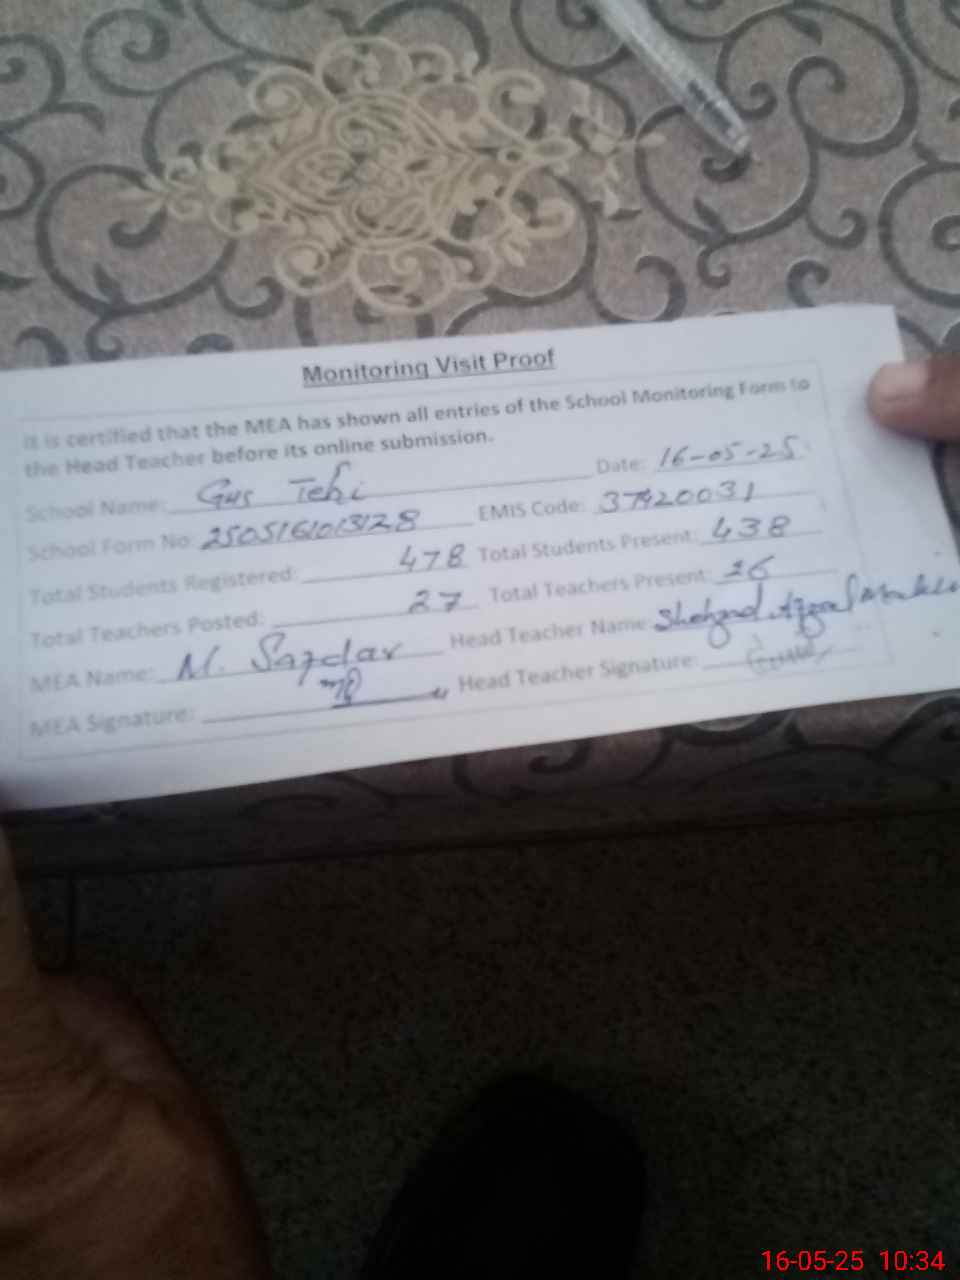 Monitoring Visit Proof
It is certified that the MEA has shown all entries of the School Monitoring Form to
the Head Teacher before its online submission.
School Name: GHS Tehi Date: 16-05-25
School Form No: EMIS Code: 37420031
Total Students Registered: 478 Total Students Present: 438
Total Teachers Posted: 27 Total Teachers Present: 26
MEA Name: M. Safdar Head Teacher Name: Shehzad
MEA Signature: Head Teacher Signature:
16-05-25 10:34